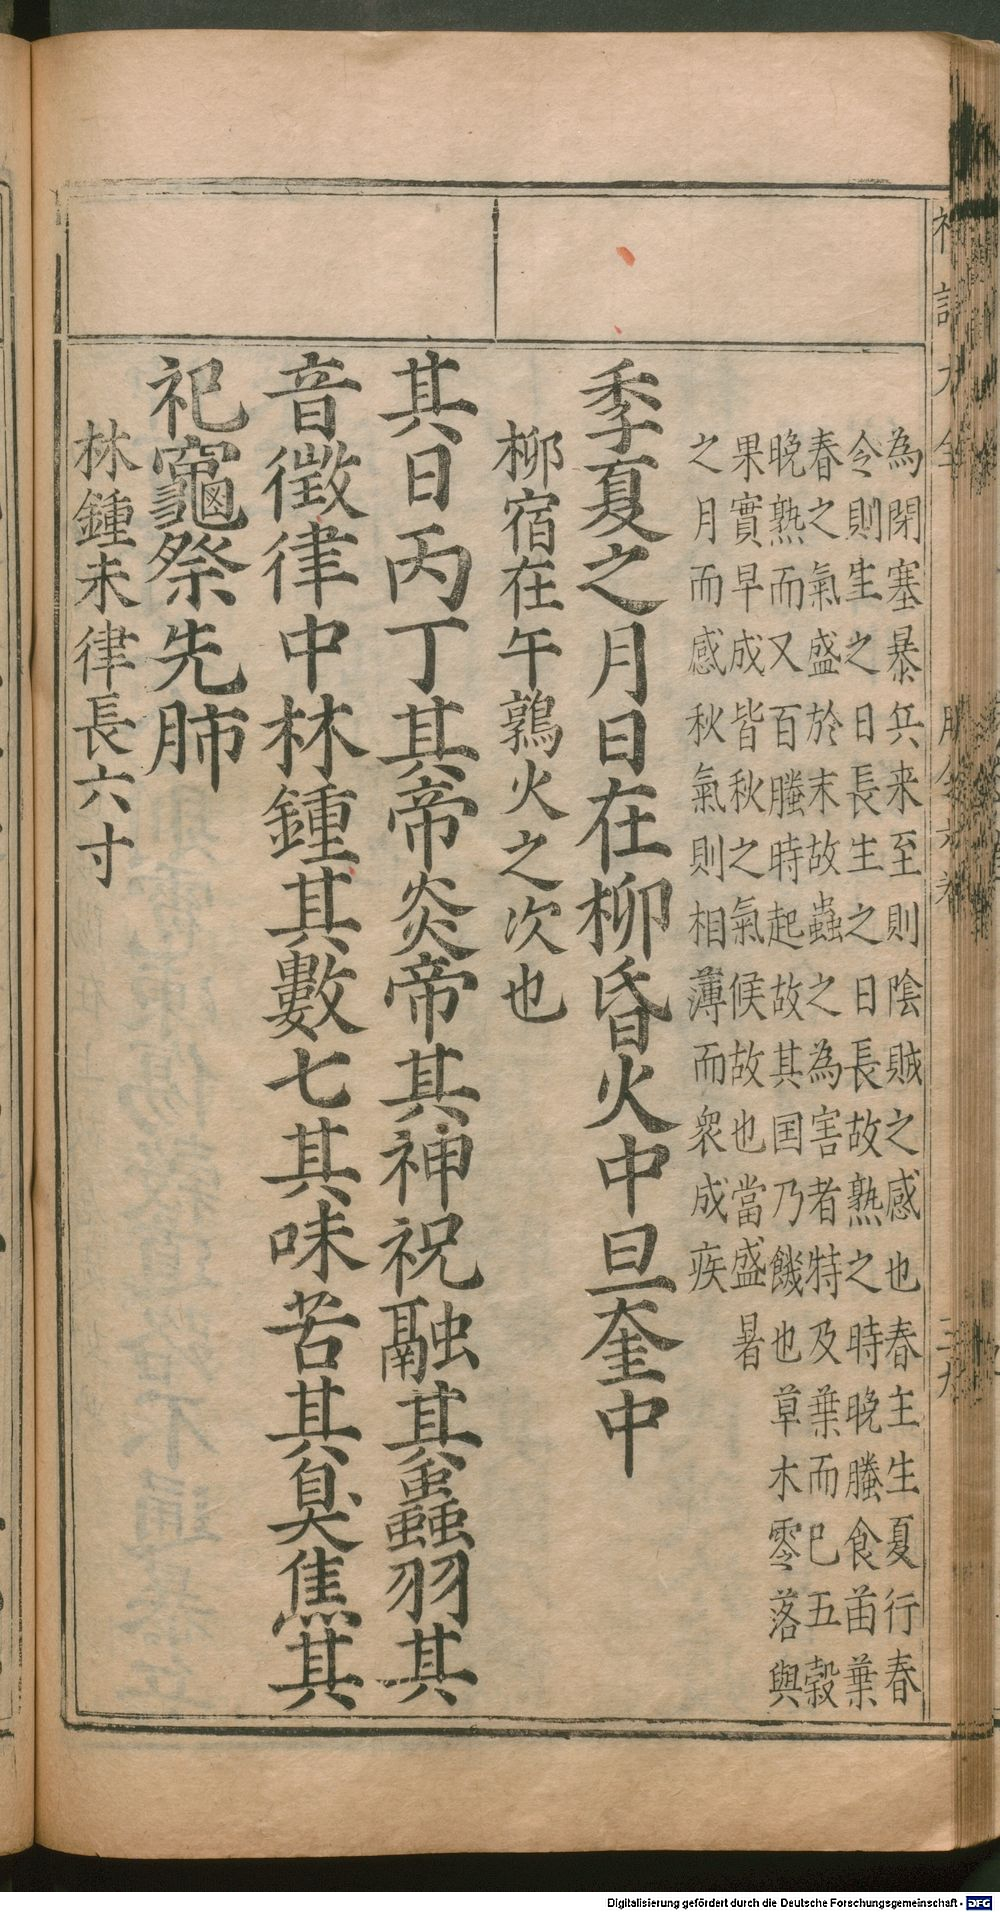 為閉塞暴兵来至則陰賊之感也春主生夏行春
令則生之日長生之日長故熟之時晚螣食苗葉
春之氣盛於末故蟲之為害者特及葉而巳五穀
晚熟而又百螣時起故其国乃饑也草木零落與
果實早成皆秋之氣候故也當盛暑
之月而感秋氣則相薄而衆成疾
季夏之月日在柳昏火中旦奎中
柳宿在午鶉火之次也
其日丙丁其帝炎帝其神祝融其蟲羽其
音徵律中林鍾其數七其味苦其臭焦其
祀竈祭先肺
林鍾未律長六寸
Digitalisierung gefördert durch die Deutsche Forschungsgemeinschaft - DFG